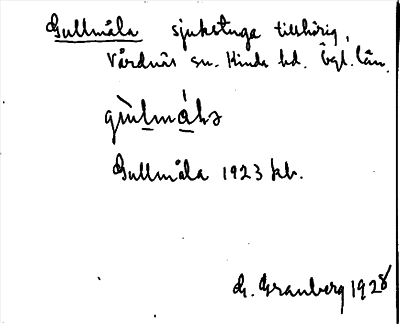 Gullmåla sjukstuga tillhörig,
Vårdnäs sn. Kinda hd. Ögl. län.
gùlmáła
Gullmåla 1923 jkb.
G. Granberg 1928